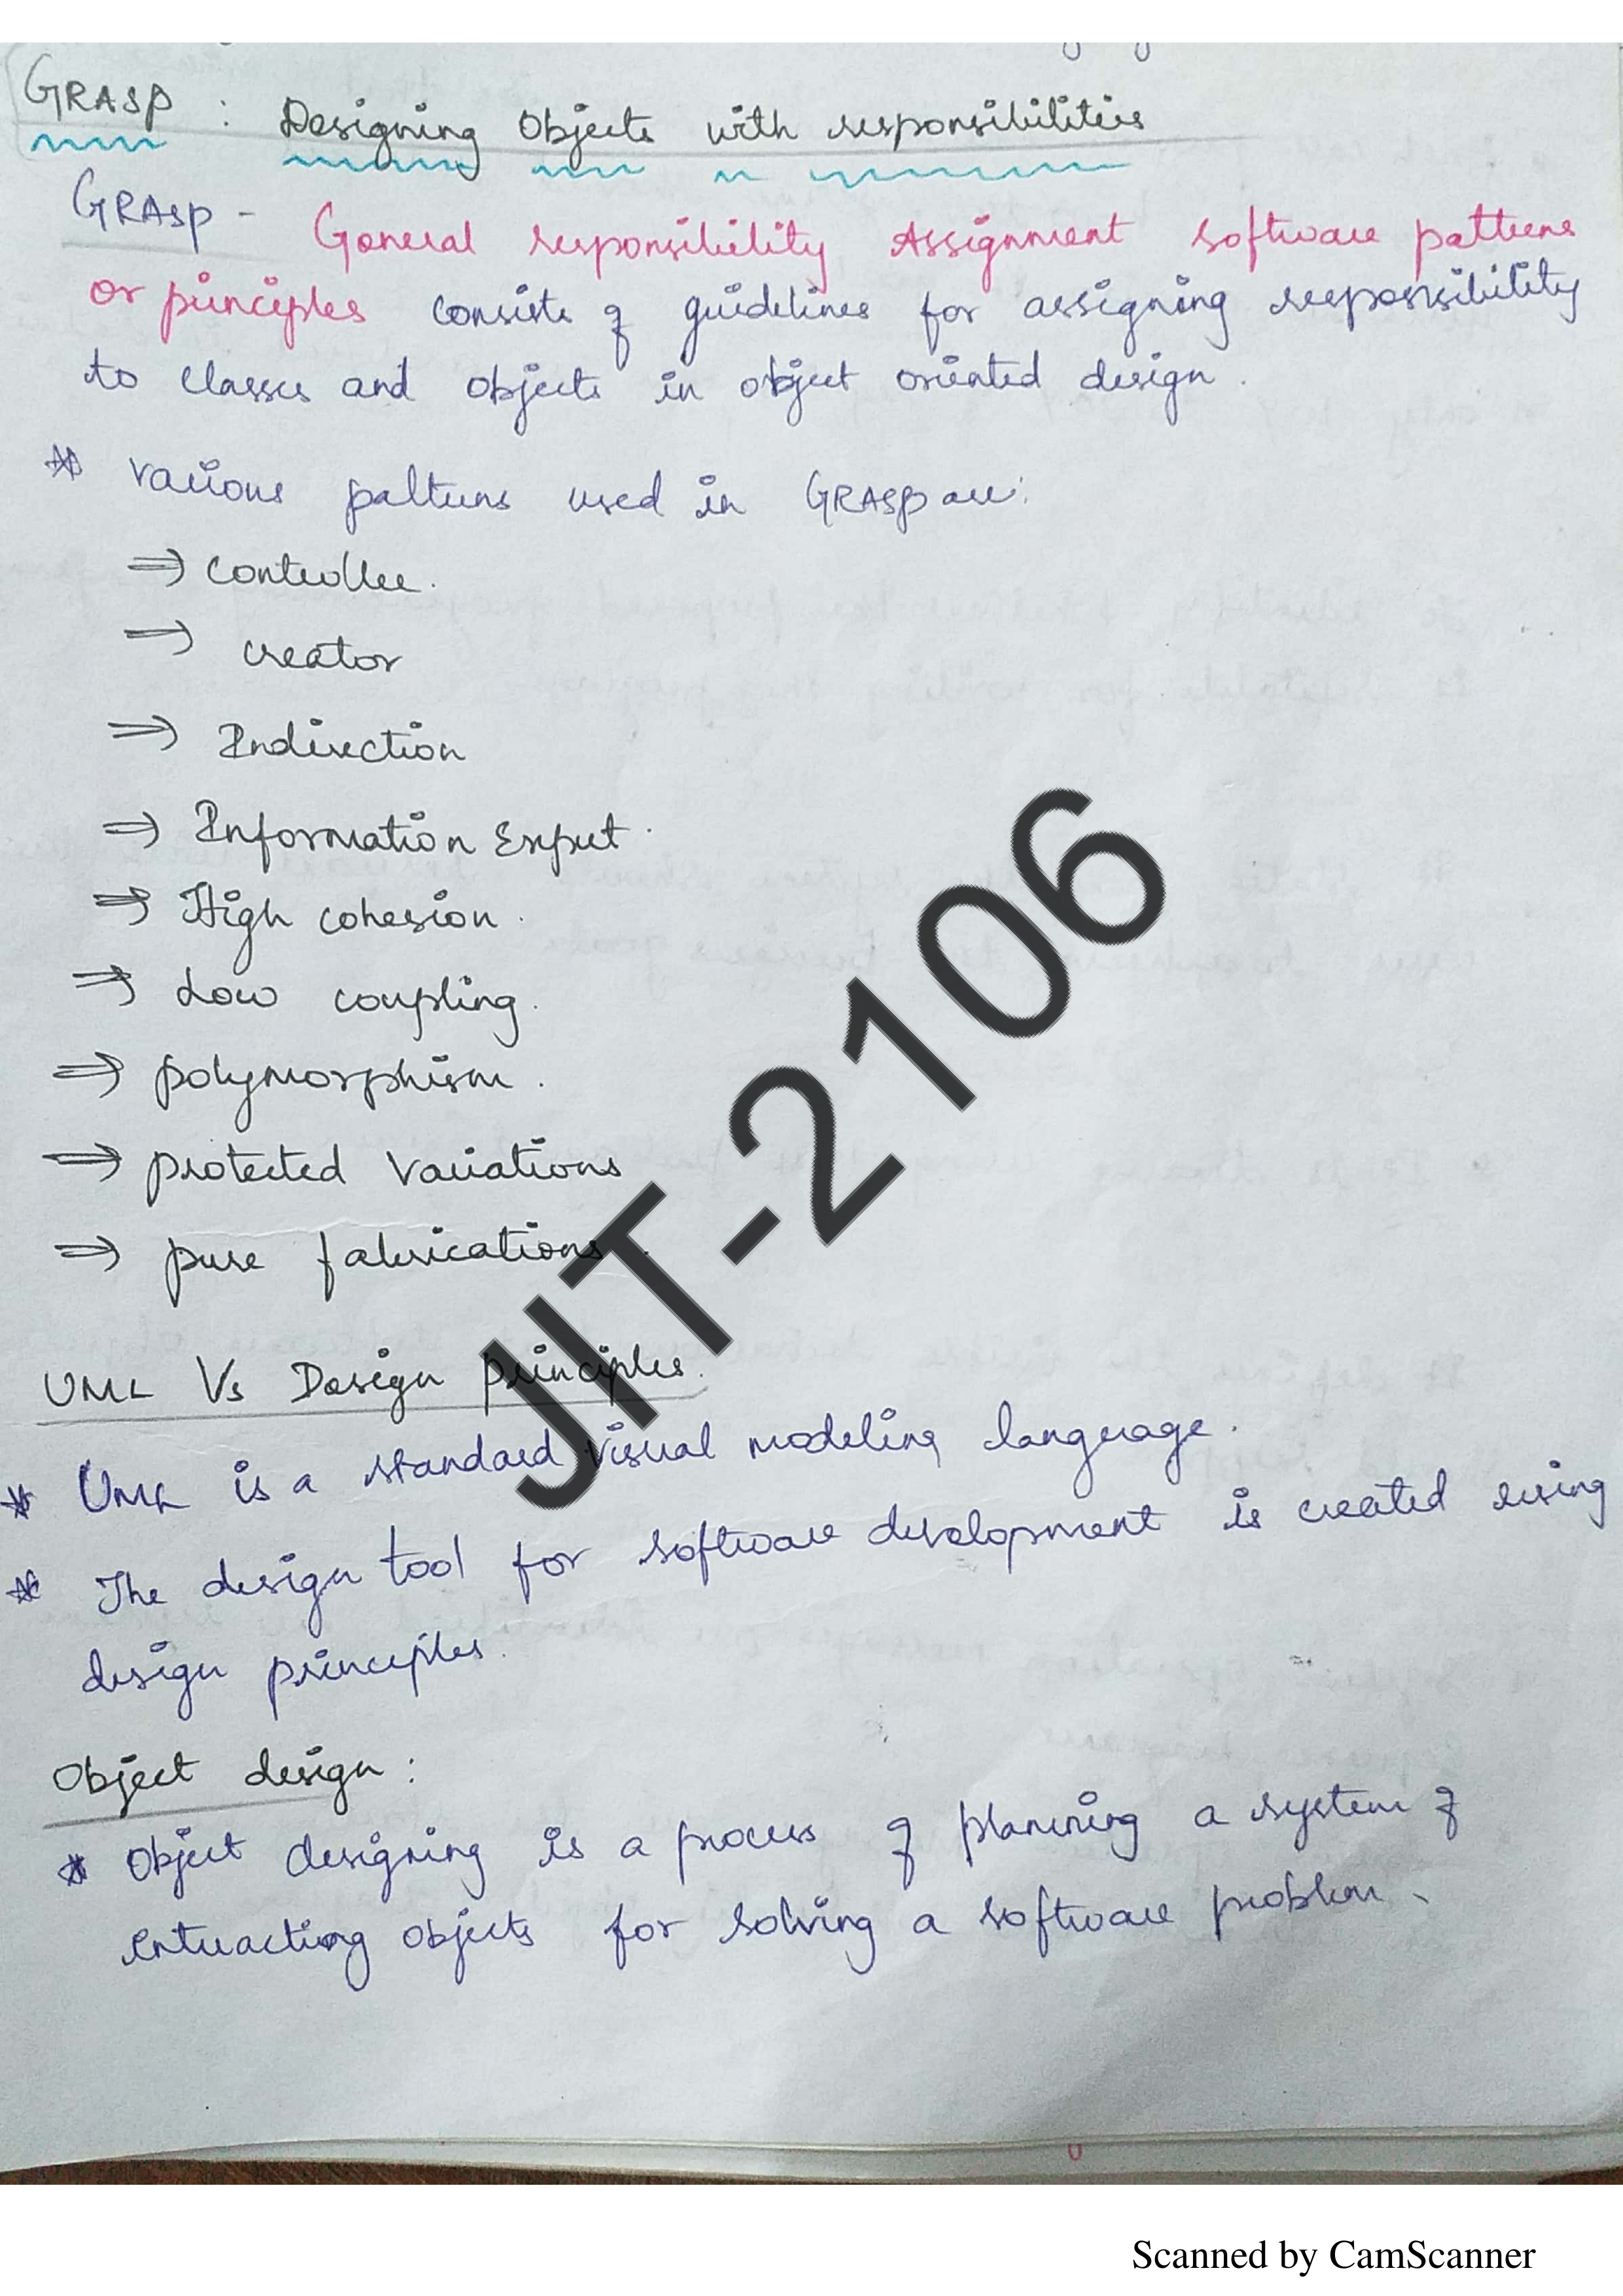 GRASP : Designing Objects with responsibilities
GRASP - General responsibility Assignment software patterns
or principles consists of guidelines for assigning responsibility
to classes and objects in object oriented design.
* various patterns used in GRASP are:
⇒ controller.
⇒ creator
⇒ Indirection
⇒ Information Expert.
⇒ High cohesion.
⇒ Low coupling.
⇒ polymorphism.
⇒ protected variations
⇒ pure fabrications.
UML Vs Design principles.
* UML is a standard visual modeling language.
* The design tool for software development is created using
design principles.
Object design:
* Object designing is a process of planning a system of
interacting objects for solving a software problem.
JIT-2106
Scanned by CamScanner